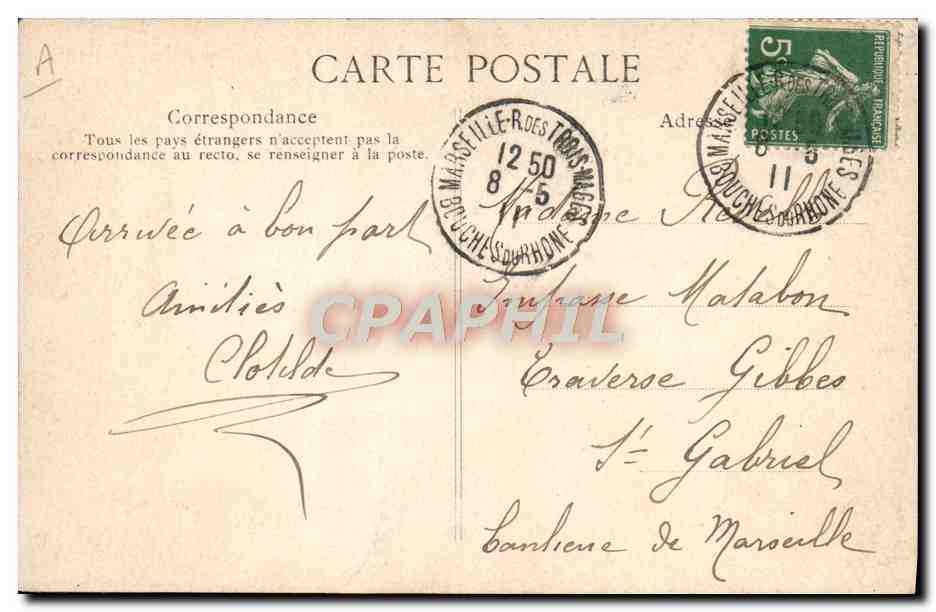 A
CARTE POSTALE
Correspondance
Tous les pays étrangers n'acceptent pas la
correspondance au recto, se renseigner à la poste.
Arrivée à bon port
Amitiés
Clotilde
Adresse
5c
RÉPUBLIQUE FRANÇAISE
POSTES
MARSEILLE-R. DES TROIS-MAGES
12 50
8 -5
11
BOUCHES DU RHONE
MARSEILLE-R. DES TROIS MAGES
8 -5
11
BOUCHES DU RHONE
Madame
Impasse Matabon
Traverse Gibbes
St Gabriel
banlieue de Marseille
CPAPHIL